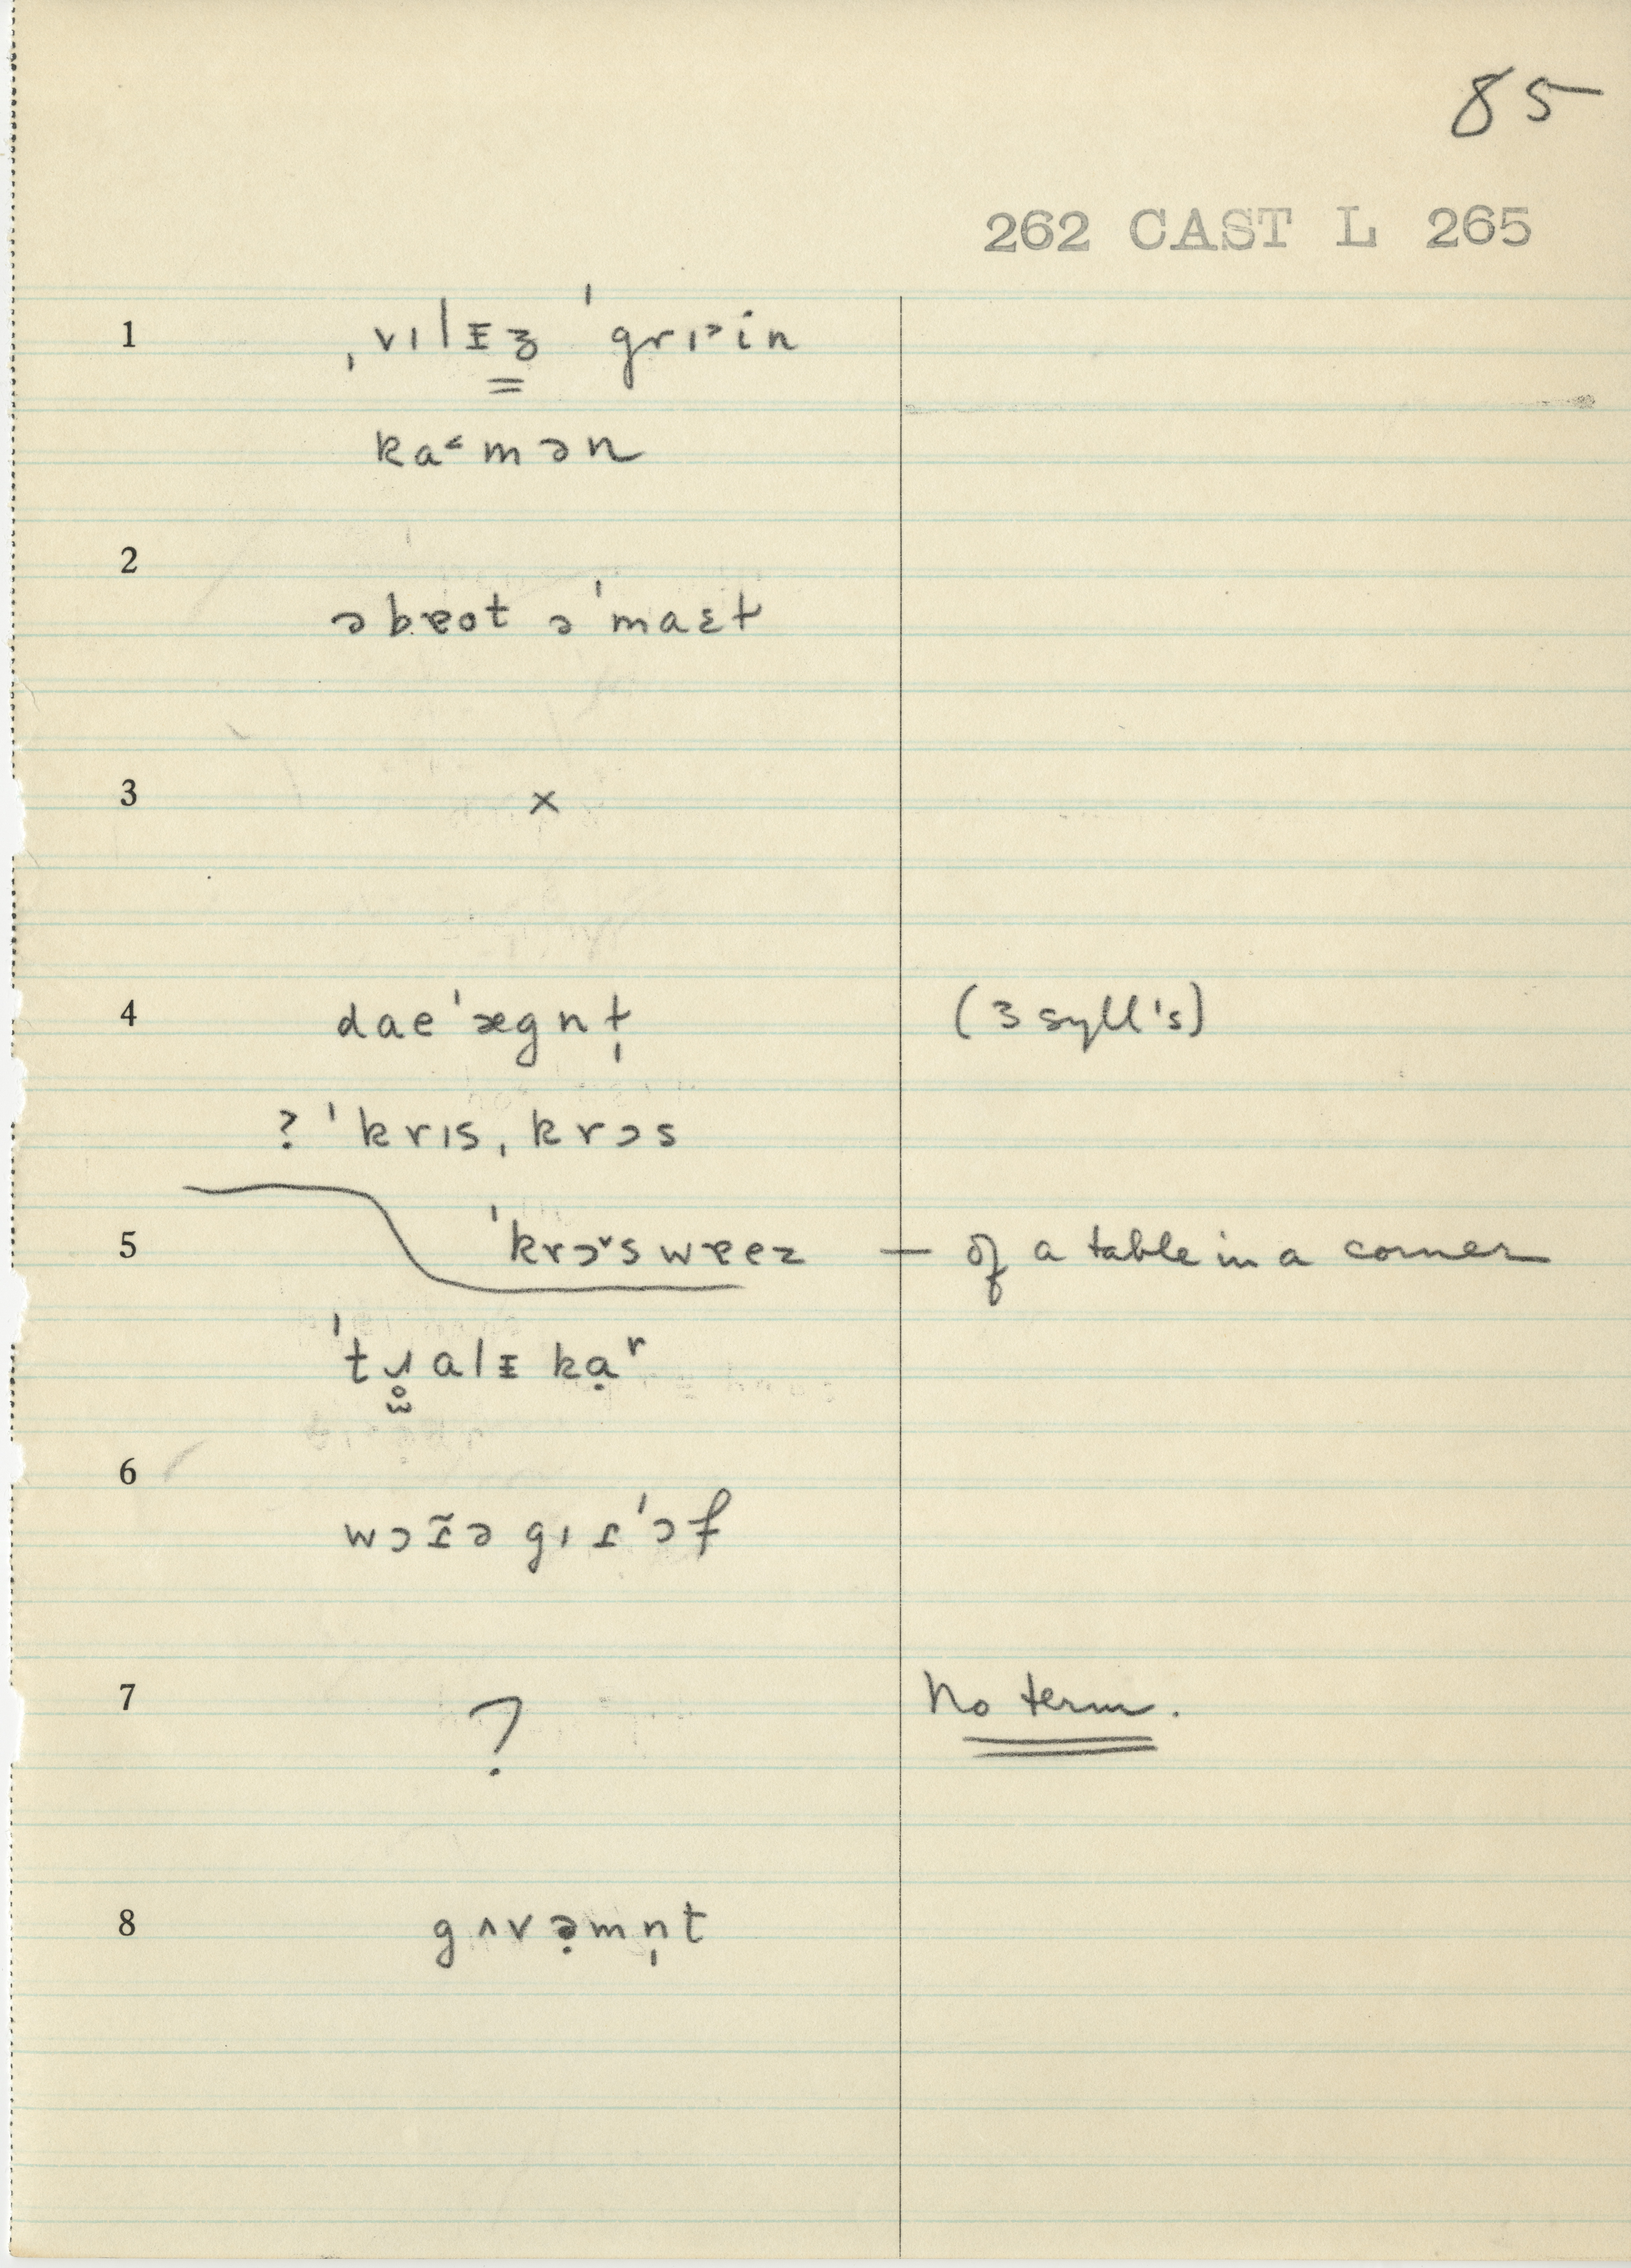 85
262 CAST L 265
1 ˌvɪlᵻʒ ˈgrɪ˃in
ka˂mən
2
əbɐot əˈmaɛt
3 ×
4 daeˈægnt̩ (3 syll's)
? ˈkrɪsˌkrɔs
5 ˈkrɔ˅sweez — of a table in a corner
kạʳ
6
7 ? No term.
8 gʌvə̣mn̩t